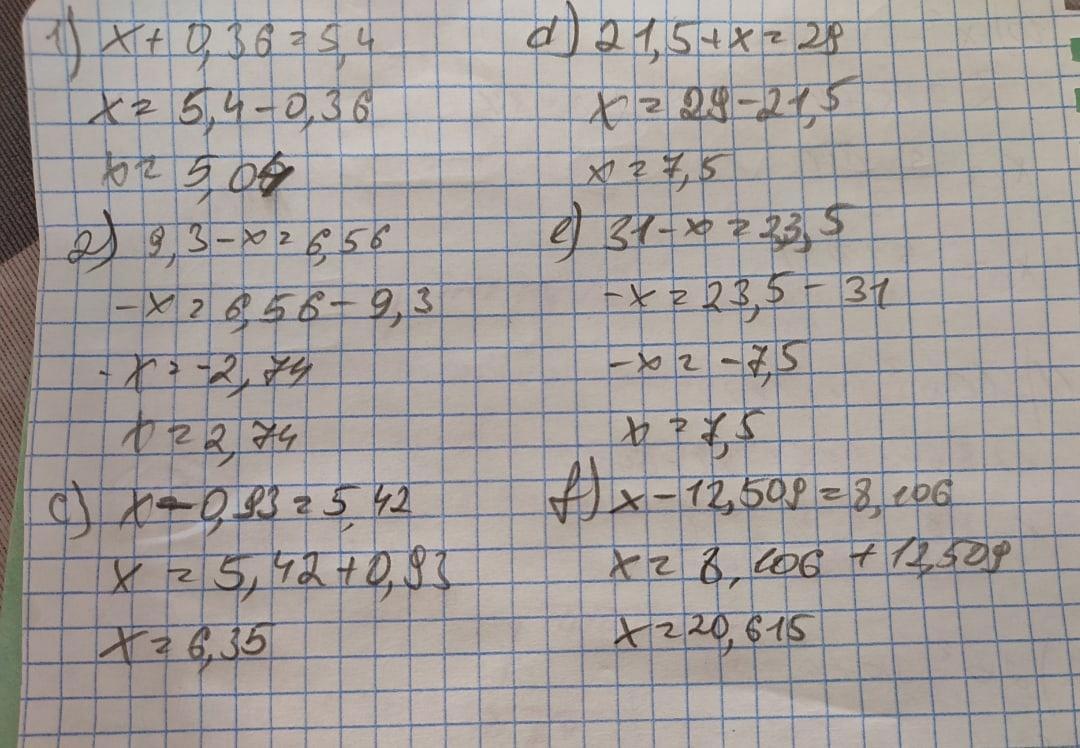 1) x + 0,36 = 5,4
x = 5,4 - 0,36
x = 5,04
2) 9,3 - x = 6,56
-x = 6,56 - 9,3
-x = -2,74
x = 2,74
c) x - 0,93 = 5,42
x = 5,42 + 0,93
x = 6,35
d) 21,5 + x = 29
x = 29 - 21,5
x = 7,5
e) 31 - x = 23,5
-x = 23,5 - 31
-x = -7,5
x = 7,5
f) x - 12,509 = 8,106
x = 8,106 + 12,509
x = 20,615